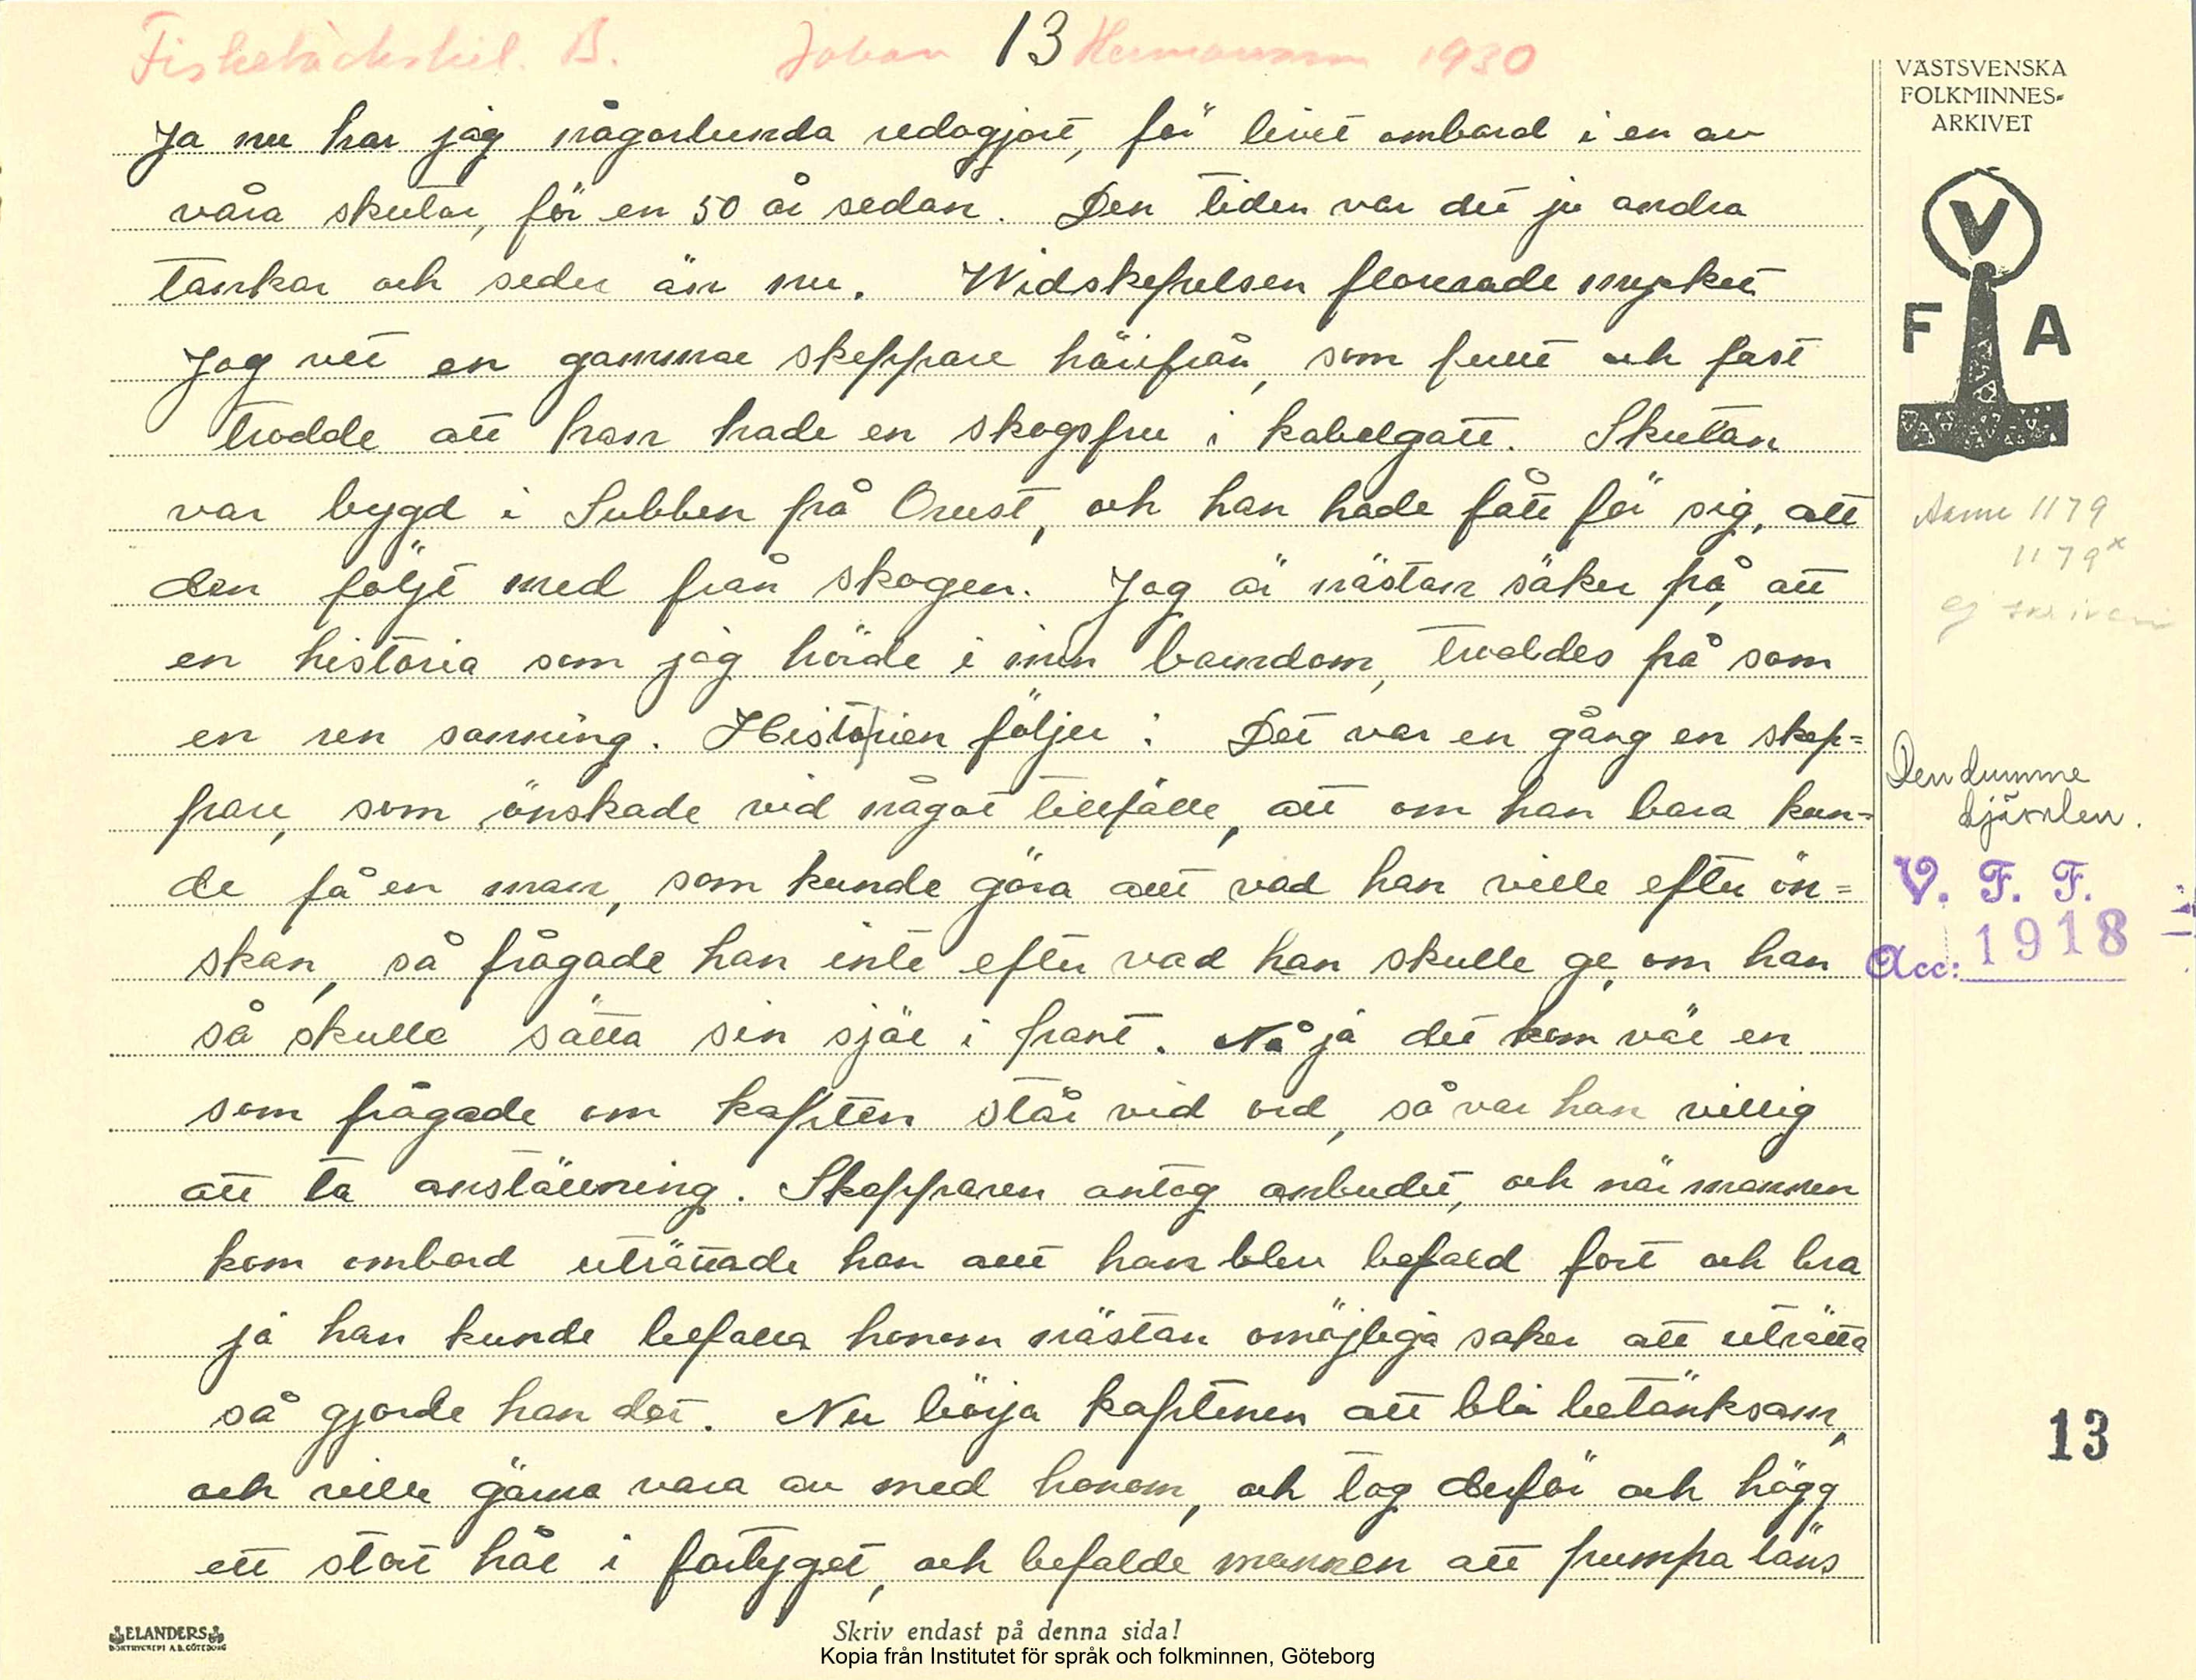 Fiskebäckskil. B. Johan 13 Hermansson 1930
Ja nu har jag någorlunda redogjort, för livet ombord i en av
våra skutor, för en 50 år sedan. Den tiden var det ju andra
tankar och seder än nu. Widskepelsen florerade mycket
Jag vet en gammal skeppare härifrån, som fullt och fast
trodde att han hade en skogsfru i kabelgatt. Skutan
var bygd i Subben på Orust, och han hade fått för sig, att
den följt med från skogen. Jag är nästan säker på, att
en historia som jag hörde i min barndom, troddes på som
en ren sanning. Historien följer: Det var en gång en skep=
pare, som önskade vid något tillfälle, att om han bara kun=
de få en man, som kunde göra allt vad han ville efter ön=
skan, så frågade han inte efter vad han skulle ge, om han
så skulle sätta sin själ i pant. Nå ja det kom väl en
som frågade om kapten står vid ord, så var han villig
att ta anställning. Skepparen antog anbudet, och när mannen
kom ombord uträttade han allt han blev befald fort och bra
ja han kunde befalla honom nästan omöjliga saker att uträtta
så gjorde han det. Nu börja kaptenen att bli betänksam,
och ville gärna vara av med honom, och tog derför och högg
ett stort hål i fartyget, och befalde mannen att pumpa läns
VÄSTSVENSKA
FOLKMINNES=
ARKIVET
V
F A
Aarne 1179
1179x
ej skriven
Den dumme
djävulen.
V. F. F.
Acc: 1918
13
ELANDERS
BOKTRYCKERI A.B. GÖTEBORG
Skriv endast på denna sida!
Kopia från Institutet för språk och folkminnen, Göteborg